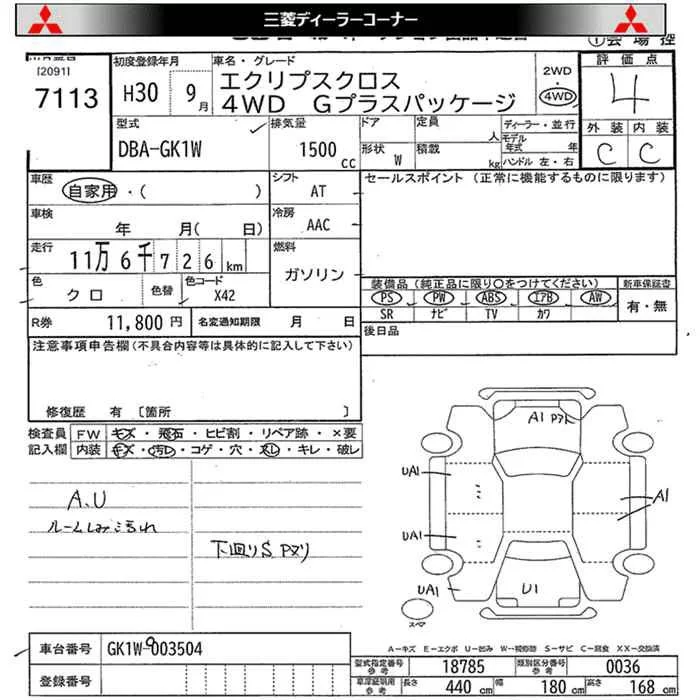 三菱ディーラーコーナー
会場控
[2091]
7113
初度登録年月
H30 9月
車名・グレード
エクリプスクロス
4WD Gプラスパッケージ
2WD
・
4WD
評価点
4
外装 内装
C C
型式
DBA-GK1W
排気量
1500 cc
ドア 定員 人
形状 W 積載 kg
ディーラー・並行
モデル年式 年
ハンドル 左・右
車歴
自家用・( )
シフト
AT
セールスポイント (正常に機能するものに限ります)
車検
年 月( 日)
冷房
AAC
走行
11万6千726km
燃料
ガソリン
色
クロ
色替
色コード
X42
装備品 (純正品に限り〇をつけてください)
新車保証書
PS PW ABS エアB AW
有・無
SR ナビ TV カワ
R券 11,800円 名変通知期限 月 日
後日品
注意事項申告欄(不具合内容等は具体的に記入して下さい)
修復歴 有 [箇所 ]
検査員 FW キズ・飛石・ヒビ割・リペア跡・×要
記入欄 内装 キズ・汚レ・コゲ・穴・スレ・キレ・破レ
A.U
ルームしみ汚れ
下回りS Pヌリ
A1
UA1
A1
UA1
UA1
U1
スペア
車台番号 GK1W-003504
登録番号
A=キズ E=エクボ U=凹み W=補修跡 S=サビ C=腐食 XX=交換済
型式指定番号 参考 18785 類別区分番号 参考 0036
車庫証明用 参考 長さ 440cm 幅 180cm 高さ 168cm